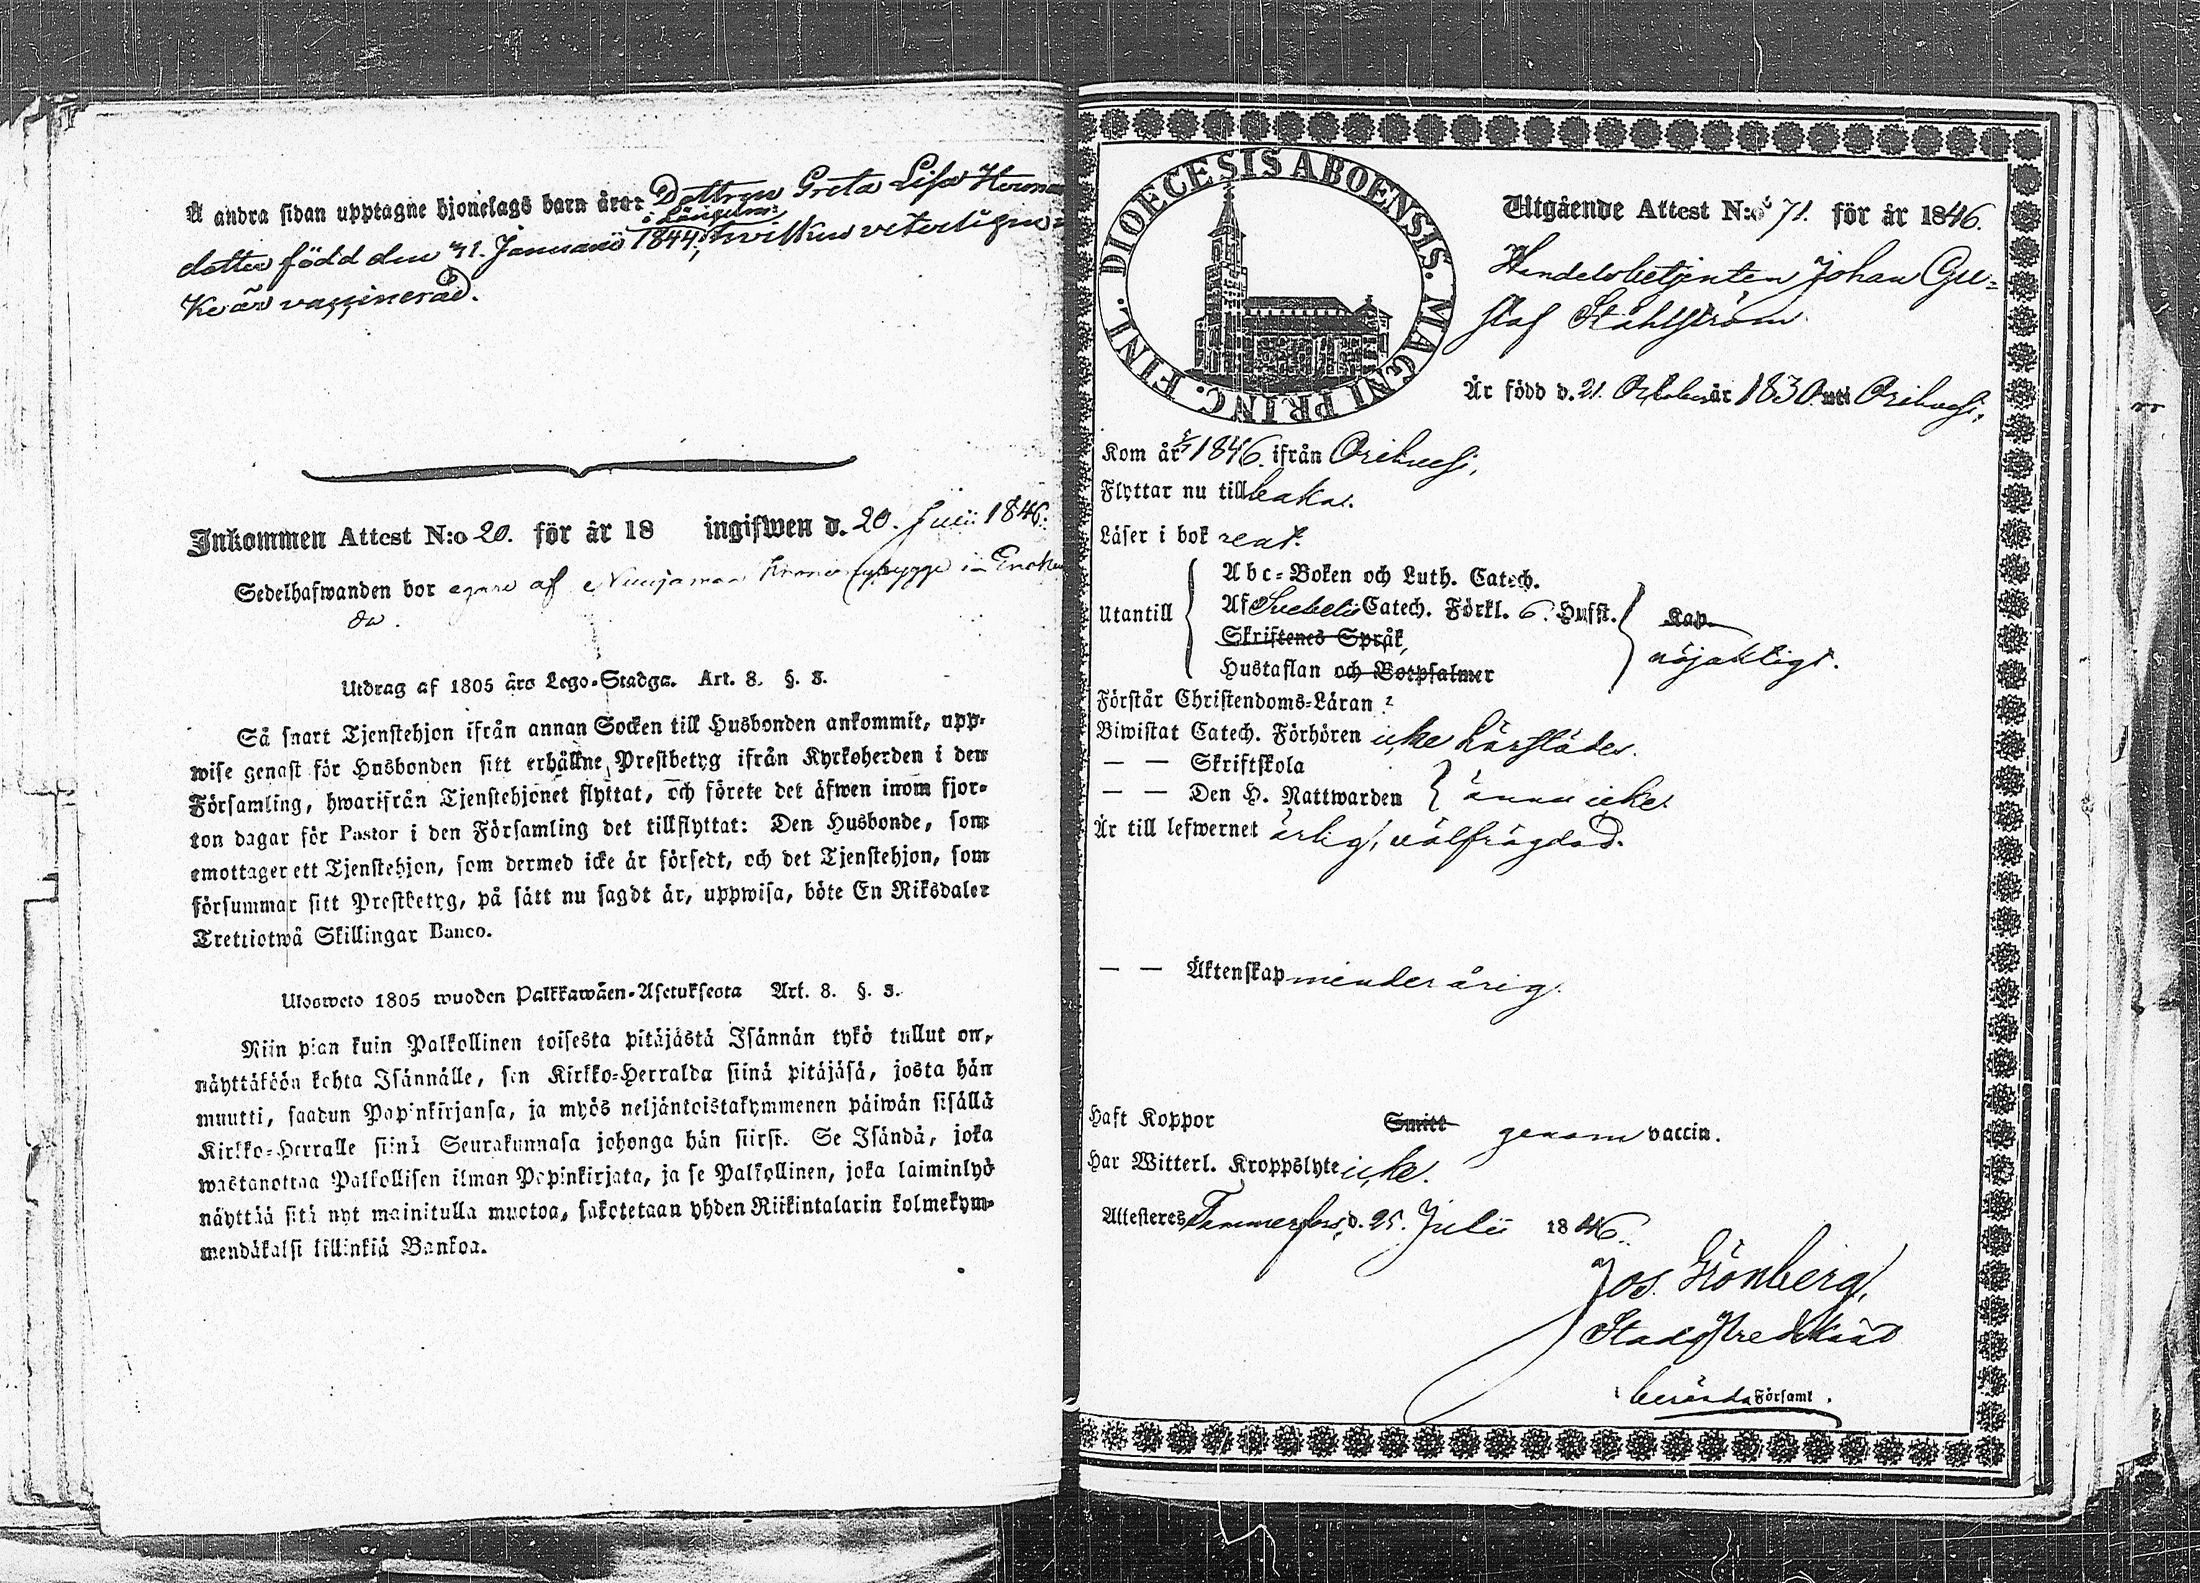 Å andra sidan upptagne hjonelags barn äro: Dottren Greta Lisa Herman
i Längelm:
dotter född den 31. Januarii 1844, hvilken veterligen
ke är vaccinerad.
Inkommen Attest N:o 20. för år 18 ingifwen d. 20. Juli 1846.
Sedelhafwanden bor egare af Nuujamaa Krono nybygge i
by.
Utdrag af 1805 års Lego-Stadga. Art. 8. §. 3.
Så snart Tjenstehjon ifrån annan Socken till Husbonden ankommit, upp-
wise genast för Husbonden sitt erhållne Prestbetyg ifrån Kyrkoherden i den
Församling, hwarifrån Tjenstehjonet flyttat, och förete det äfwen inom fjor-
ton dagar för Pastor i den Församling det tillflyttat: Den Husbonde, som
emottager ett Tjenstehjon, som dermed icke är försedt, och det Tjenstehjon, som
försummar sitt Prestbetyg, på sätt nu sagdt är, uppwisa, böte En Riksdaler
Trettiotwå Skillingar Banco.
Ulosweto 1805 wuoden Palkkawäen-Asetuksesta Art. 8. §. 3.
Niin pian kuin Palkollinen toisesta pitäjästä Isännän tykö tullut on,
näyttäköön kohta Isännälle, sen Kirkko-Herralda siinä pitäjäsä, josta hän
muutti, saadun Papinkirjansa, ja myös neljäntoistakymmenen päiwän sisällä
Kirkko-Herralle siinä Seurakunnasa johonga hän siirsi. Se Isändä, joka
wastanottaa Palkollisen ilman Papinkirjata, ja se Palkollinen, joka laiminlyö
näyttää sitä nyt mainitulla muotoa, sakotetaan yhden Riikintalarin kolmekym-
mendäkaksi killinkiä Bankoa.
DIOECESIS ABOENSIS. MAGNI PRINC. FINL.
Utgående Attest N:o 71. för år 1846.
Handelsbetjenten Johan Gu-
staf Ståhlström
Är född d. 21. October år 1830 uti Orihvesi.
Kom år 1846. ifrån Orihvesi,
Flyttar nu tillbaka.
Läser i bok rent.
Abc-Boken och Luth. Catech.
Utantill Af Svebelii Catech. Förkl. 6. Hufst. Kap.
Skriftenes Språk,
nöjaktigt.
Hustaflan och Botpsalmer
Förstår Christendoms-Läran
Biwistat Catech. Förhören icke härstädes.
— — Skriftskola
— — Den H. Nattwarden ännu icke.
Är till lefwernet ärlig, välfrägdad.
— — Äktenskap minderårig.
Haft Koppor Smitt genom vaccin.
Har Witterl. Kroppslyte icke.
Attesteres Tammerfors d. 25. Julii 1846.
Jos. Grönberg,
Stadspredikant
i berörda Församl.